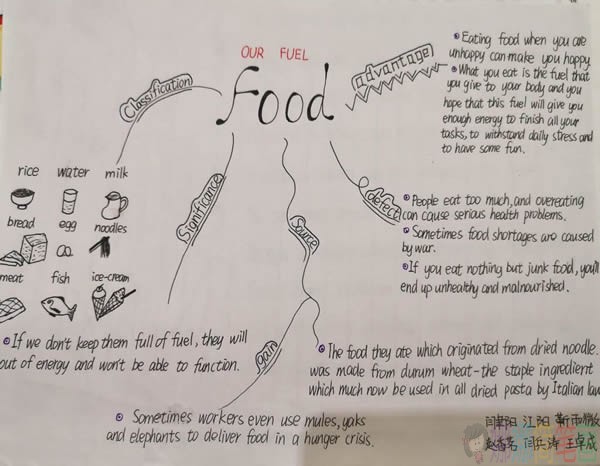 OUR FUEL
Food
Classification
rice water milk
bread egg noodles
meat fish ice-cream
advantage
Eating food when you are
unhappy can make you happy
What you eat is the fuel that
you give to your body and you
hope that this fuel will give you
enough energy to finish all your
tasks, to withstand daily stress and
to have some fun.
defect
People eat too much, and overeating
can cause serious health problems.
Sometimes food shortages are caused
by war.
If you eat nothing but junk food, you'll
end up unhealthy and malnourished.
Significance
If we don't keep them full of fuel, they will
out of energy and won't be able to function.
Source
The food they ate which originated from dried noodle.
was made from durum wheat-the staple ingredient
which much now be used in all dried pasta by Italian law
gain
Sometimes workers even use mules, yaks
and elephants to deliver food in a hunger crisis.
江阳 靳雨
闫兵涛 王卓成